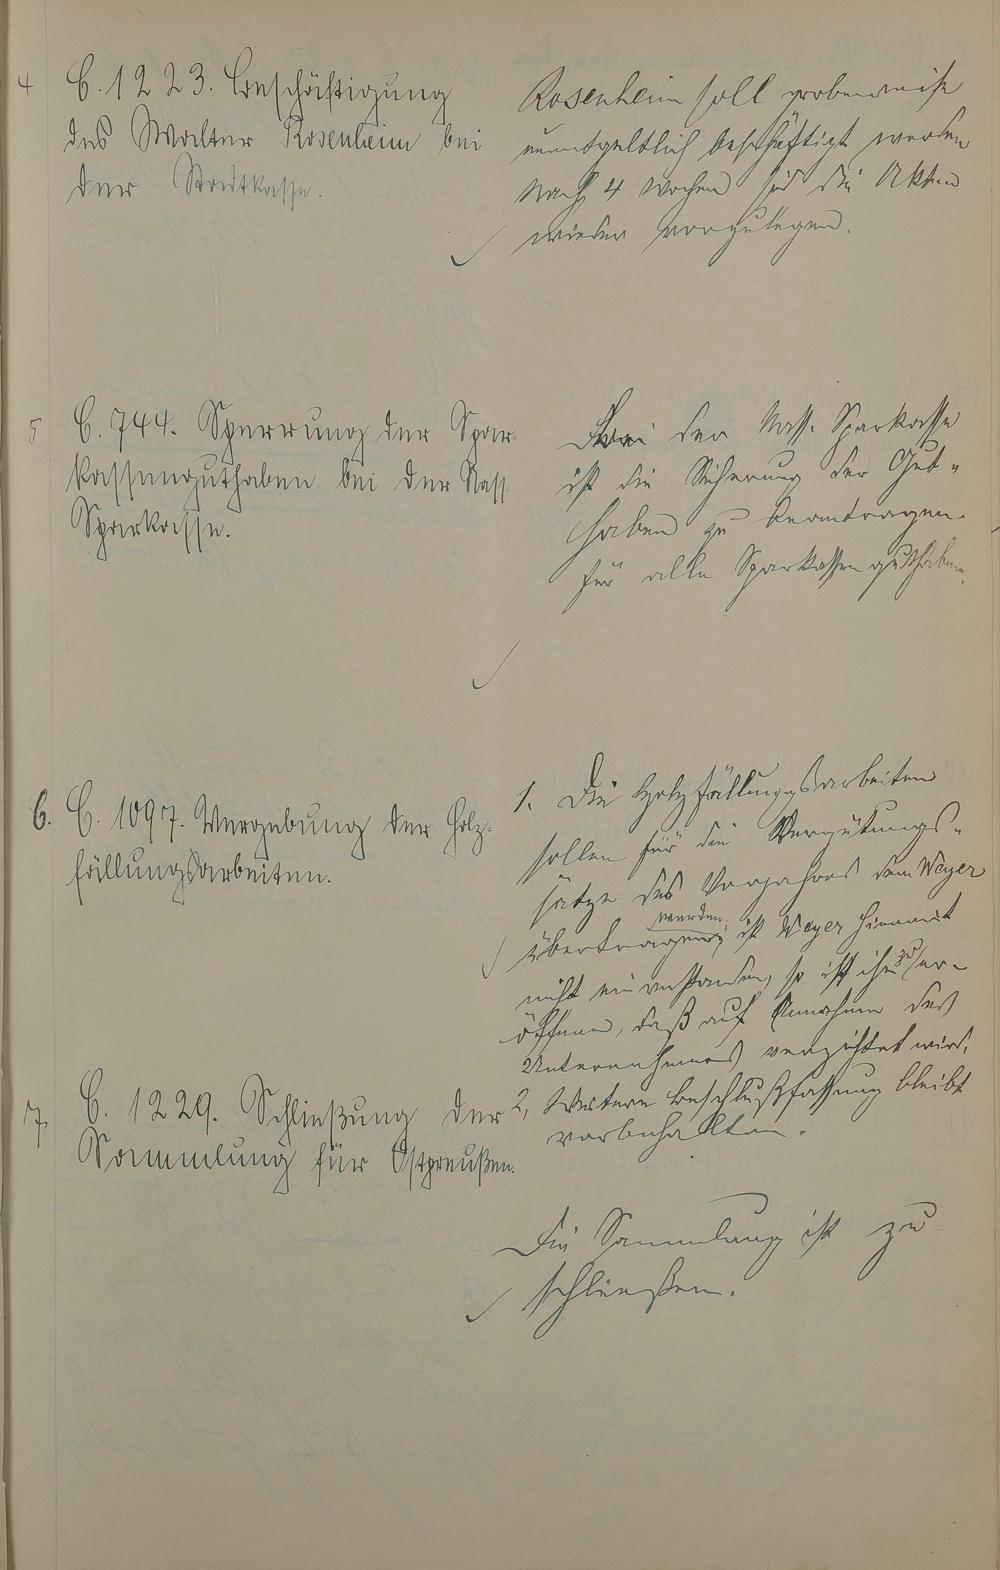 4 C. 1223. Beschäftigung
des Walter Rosenheim bei
der Stadtkasse.
Rosenheim soll probeweise
unentgeltlich beschäftigt werden
Nach 4 Wochen sind die Akten
wieder vorzulegen.
5 C. 744. Sperrung der Spar-
kassenguthaben bei der Nass.
Sparkasse.
Bei der Nass. Sparkasse
ist die Sicherung der Gut-
haben zu beantragen.
für alle Sparkassenguthaben.
6. C. 1097. Vergebung der Holz-
fällungsarbeiten.
1. Die Holzfällungsarbeiten
sollen für die Vergütungs-
sätze des Vorjahres dem Weyer
übertragen werden; ist Weyer hiermit
nicht einverstanden, so ist ihm zu er-
öffnen, daß auf Annahme des
Unternehmers verzichtet wird.
2, Weitere Beschlußfassung bleibt
vorbehalten.
7. C. 1229. Schließung der
Sammlung für Ostpreußen.
Die Sammlung ist zu
schließen.